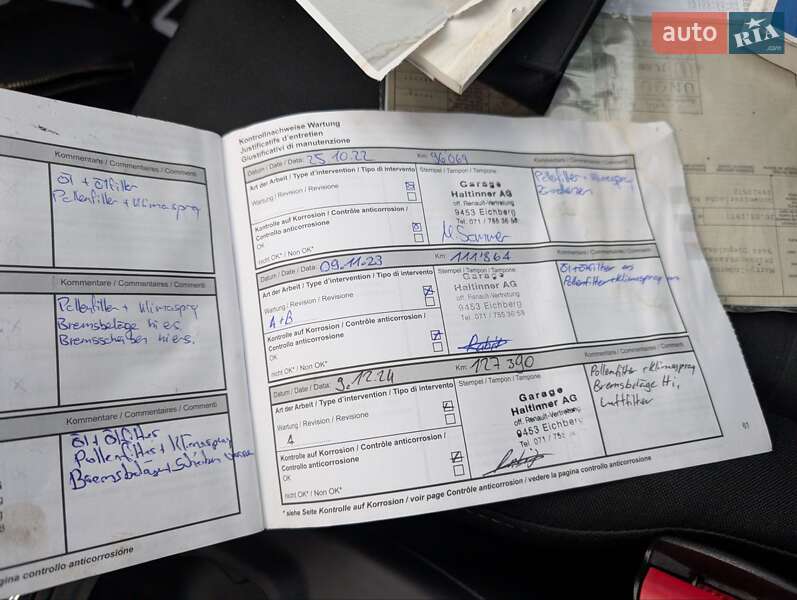 auto RIA.com
Kommentare / Commentaires / Commenti
Öl + Ölfilter
Pollenfilter + Klimaspray
Kommentare / Commentaires / Commenti
Pollenfilter + Klimaspray
Bremsbeläge hi es.
Bremsscheiben hi ers.
Kommentare / Commentaires / Commenti
Öl + Ölfilter
Pollenfilter + Klimaspray
Bremsbeläge + Scheiben
gina controllo anticorrosione
Kontrollnachweise Wartung
Justificatifs d'entretien
Giustificativi di manutenzione
Datum / Date / Data: 25.10.22 Km: 96069
Art der Arbeit / Type d'intervention / Tipo di intervento
Wartung / Revision / Revisione
Kontrolle auf Korrosion / Contrôle anticorrosion /
Controllo anticorrosione
OK
nicht OK* / Non OK*
Stempel / Tampon / Tampone
Garage
Haltinner AG
off. Renault-Vertretung
9453 Eichberg
Tel. 071 / 755 36 58
Kommentare / Commentaires / Commenti
Pollenfilter + Klimaspray
Datum / Date / Data: 09.11.23 Km: 111'864
Art der Arbeit / Type d'intervention / Tipo di intervento
Wartung / Revision / Revisione
A+B
Kontrolle auf Korrosion / Contrôle anticorrosion /
Controllo anticorrosione
OK
nicht OK* / Non OK*
Stempel / Tampon / Tampone
Garage
Haltinner AG
off. Renault-Vertretung
9453 Eichberg
Tel. 071 / 755 36 58
Kommentare / Commentaires / Commenti
Öl + Ölfilter ers
Pollenfilter + Klimaspray ers
Datum / Date / Data: 9.12.24 Km: 127 390
Art der Arbeit / Type d'intervention / Tipo di intervento
Wartung / Revision / Revisione
A
Kontrolle auf Korrosion / Contrôle anticorrosion /
Controllo anticorrosione
OK
nicht OK* / Non OK*
Stempel / Tampon / Tampone
Garage
Haltinner AG
off. Renault-Vertretung
9453 Eichberg
Tel. 071 / 755
Kommentare / Commentaires / Commenti
Pollenfilter + Klimaspray
Bremsbeläge Hi,
Luftfilter
* siehe Seite Kontrolle auf Korrosion / voir page Contrôle anticorrosion / vedere la pagina controllo anticorrosione
61